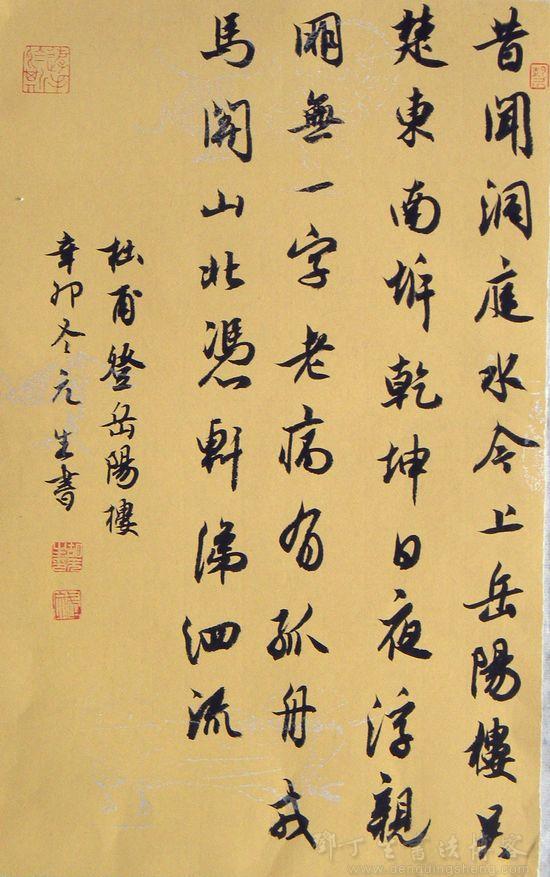 昔聞洞庭水今上岳陽樓吳
楚東南坼乾坤日夜浮親
朋無一字老病有孤舟戎
馬關山北憑軒涕泗流
杜甫登岳陽樓
辛卯冬元生書
鄧丁生書法博客
www.dengdingsheng.com